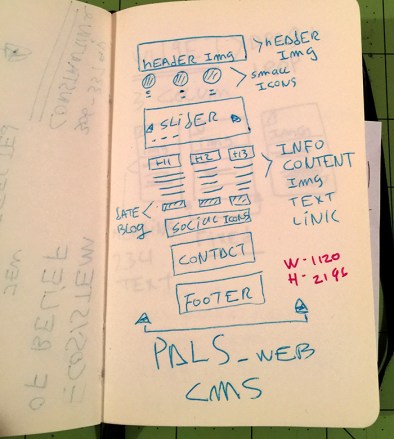 HEADER Img
HEDER
Img
small
ICONS
SLIDER
H1 H2 H3
INFO
CONTENT
Img
TEXT
LINK
SATE
BLOG
SOCIAL ICONS
CONTACT
W-1120
H-2196
FOOTER
PALS_WEB
CMS
ECOSISTEM
OF BELIEF